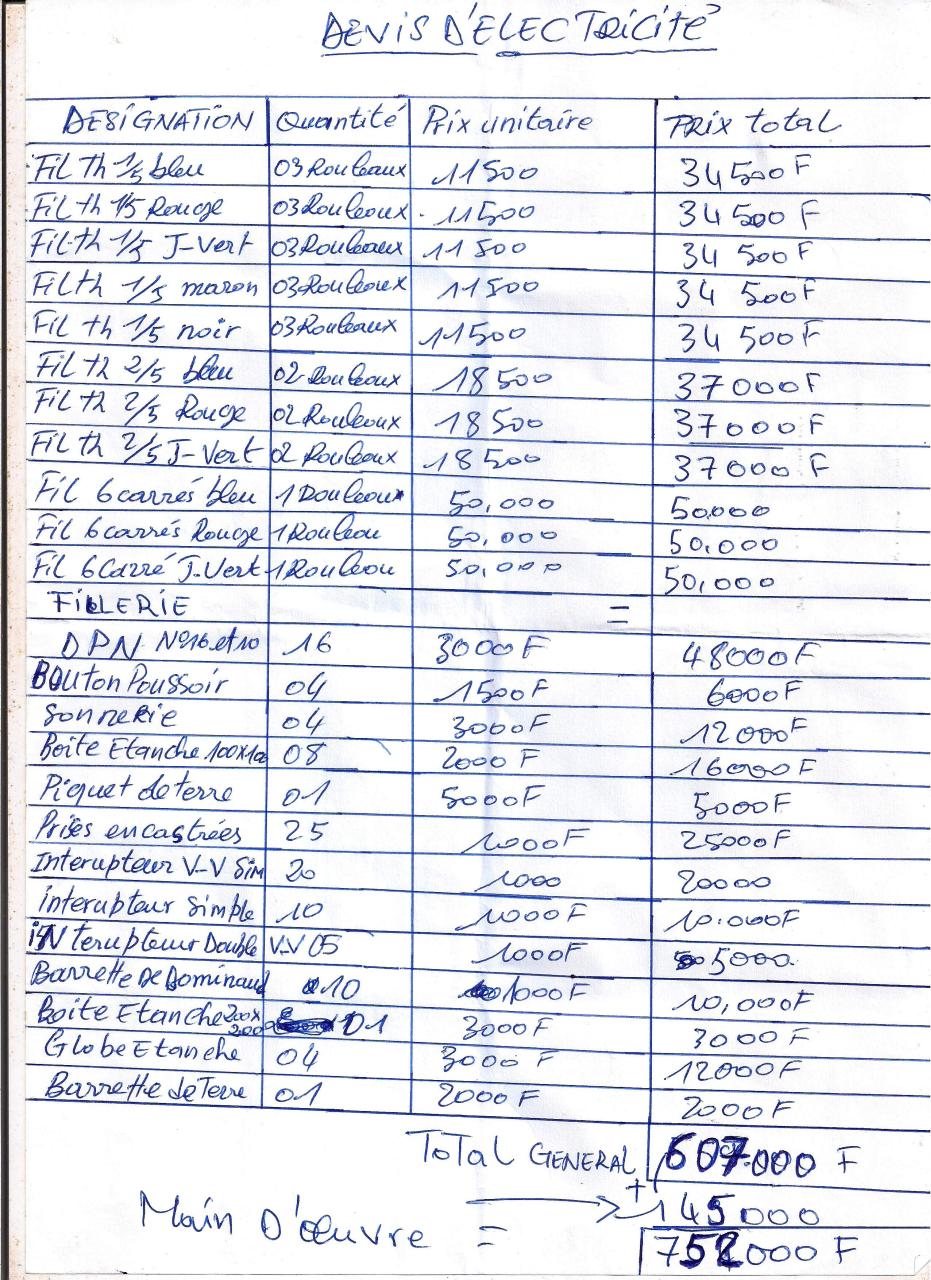 DEVIS D'ELECTRICITÉ
DESIGNATION Quantité Prix unitaire Prix total
Fil th 1/5 bleu 03 Rouleaux 11500 34 500 F
Fil th 1/5 Rouge 03 Rouleaux 11500 34 500 F
Fil th 1/5 J-Vert 03 Rouleaux 11500 34 500 F
Fil th 1/5 maron 03 Rouleaux 11500 34 500 F
Fil th 1/5 noir 03 Rouleaux 11500 34 500 F
Fil th 2/5 bleu 02 Rouleaux 18500 37000 F
Fil th 2/5 Rouge 02 Rouleaux 18500 37000 F
Fil th 2/5 J-Vert 02 Rouleaux 18500 37000 F
Fil 6 carrés bleu 1 Rouleaux 50,000 50,000
Fil 6 carrés Rouge 1 Rouleau 50,000 50,000
Fil 6 Carré J-Vert 1 Rouleau 50,000 50,000
FILLERIE =
DPN N°16 et 10 16 3000 F 48000 F
Bouton Poussoir 04 1500 F 6000 F
Sonnerie 04 3000 F 12000 F
Boite Etanche 100x100 08 2000 F 16000 F
Piquet de terre 01 5000 F 5000 F
Prises encastrées 25 1000 F 25000 F
Interupteur V-V Sim 20 1000 20000
interupteur Simple 10 1000 F 10.000 F
iNterupteur Double V.V 05 1000 F 5000
Barrette De Dominaud 10 1000 F 10,000 F
Boite Etanche 200x200 01 3000 F 3000 F
Globe Etanche 04 3000 F 12000 F
Barrette de Terre 01 2000 F 2000 F
TOTAL GENERAL 607.000 F
Main D'œuvre = + 145000
752000 F